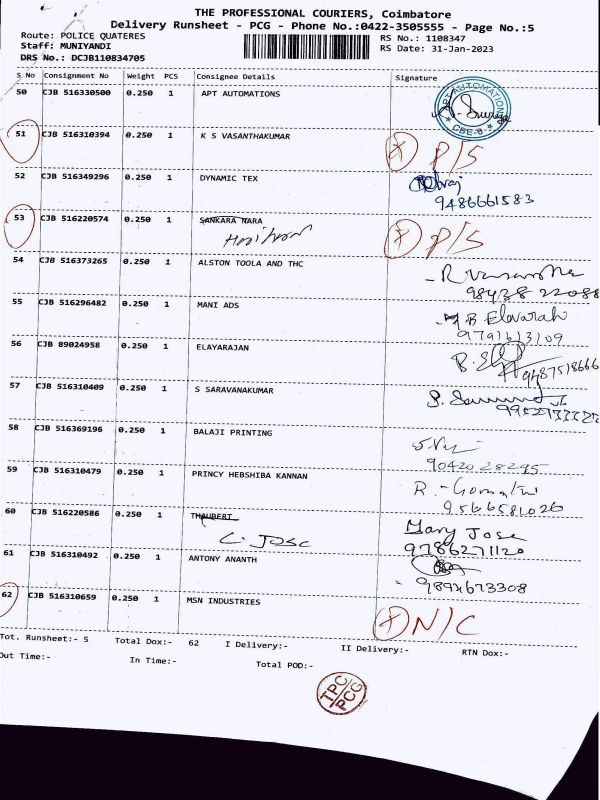 THE PROFESSIONAL COURIERS, Coimbatore
Delivery Runsheet - PCG - Phone No.:0422-3505555 - Page No.:5
Route: POLICE QUATERES RS No.: 1108347
Staff: MUNIYANDI RS Date: 31-Jan-2023
DRS No.: DCJB110834705
S No Consignment No Weight PCS Consignee Details Signature
50 CJB 516330500 0.250 1 APT AUTOMATIONS
APT AUTOMATION CBE-6
51 CJB 516310394 0.250 1 K S VASANTHAKUMAR
P/S
52 CJB 516349296 0.250 1 DYNAMIC TEX
9486661583
53 CJB 516220574 0.250 1 SANKARA NARA
P/S
54 CJB 516373265 0.250 1 ALSTON TOOLA AND THC
55 CJB 516296482 0.250 1 MANI ADS
9791613109
56 CJB 89024958 0.250 1 ELAYARAJAN
57 CJB 516310409 0.250 1 S SARAVANAKUMAR
58 CJB 516369196 0.250 1 BALAJI PRINTING
9042028295
59 CJB 516310479 0.250 1 PRINCY HEBSHIBA KANNAN
9566581026
60 CJB 516220586 0.250 1 THAUBERT
C. Jose
Mary Jose
9786271120
61 CJB 516310492 0.250 1 ANTONY ANANTH
62 CJB 516310659 0.250 1 MSN INDUSTRIES
N/C
Tot. Runsheet:- 5 Total Dox:- 62 I Delivery:- II Delivery:- RTN Dox:-
Out Time:- In Time:- Total POD:-
TPC
PCG